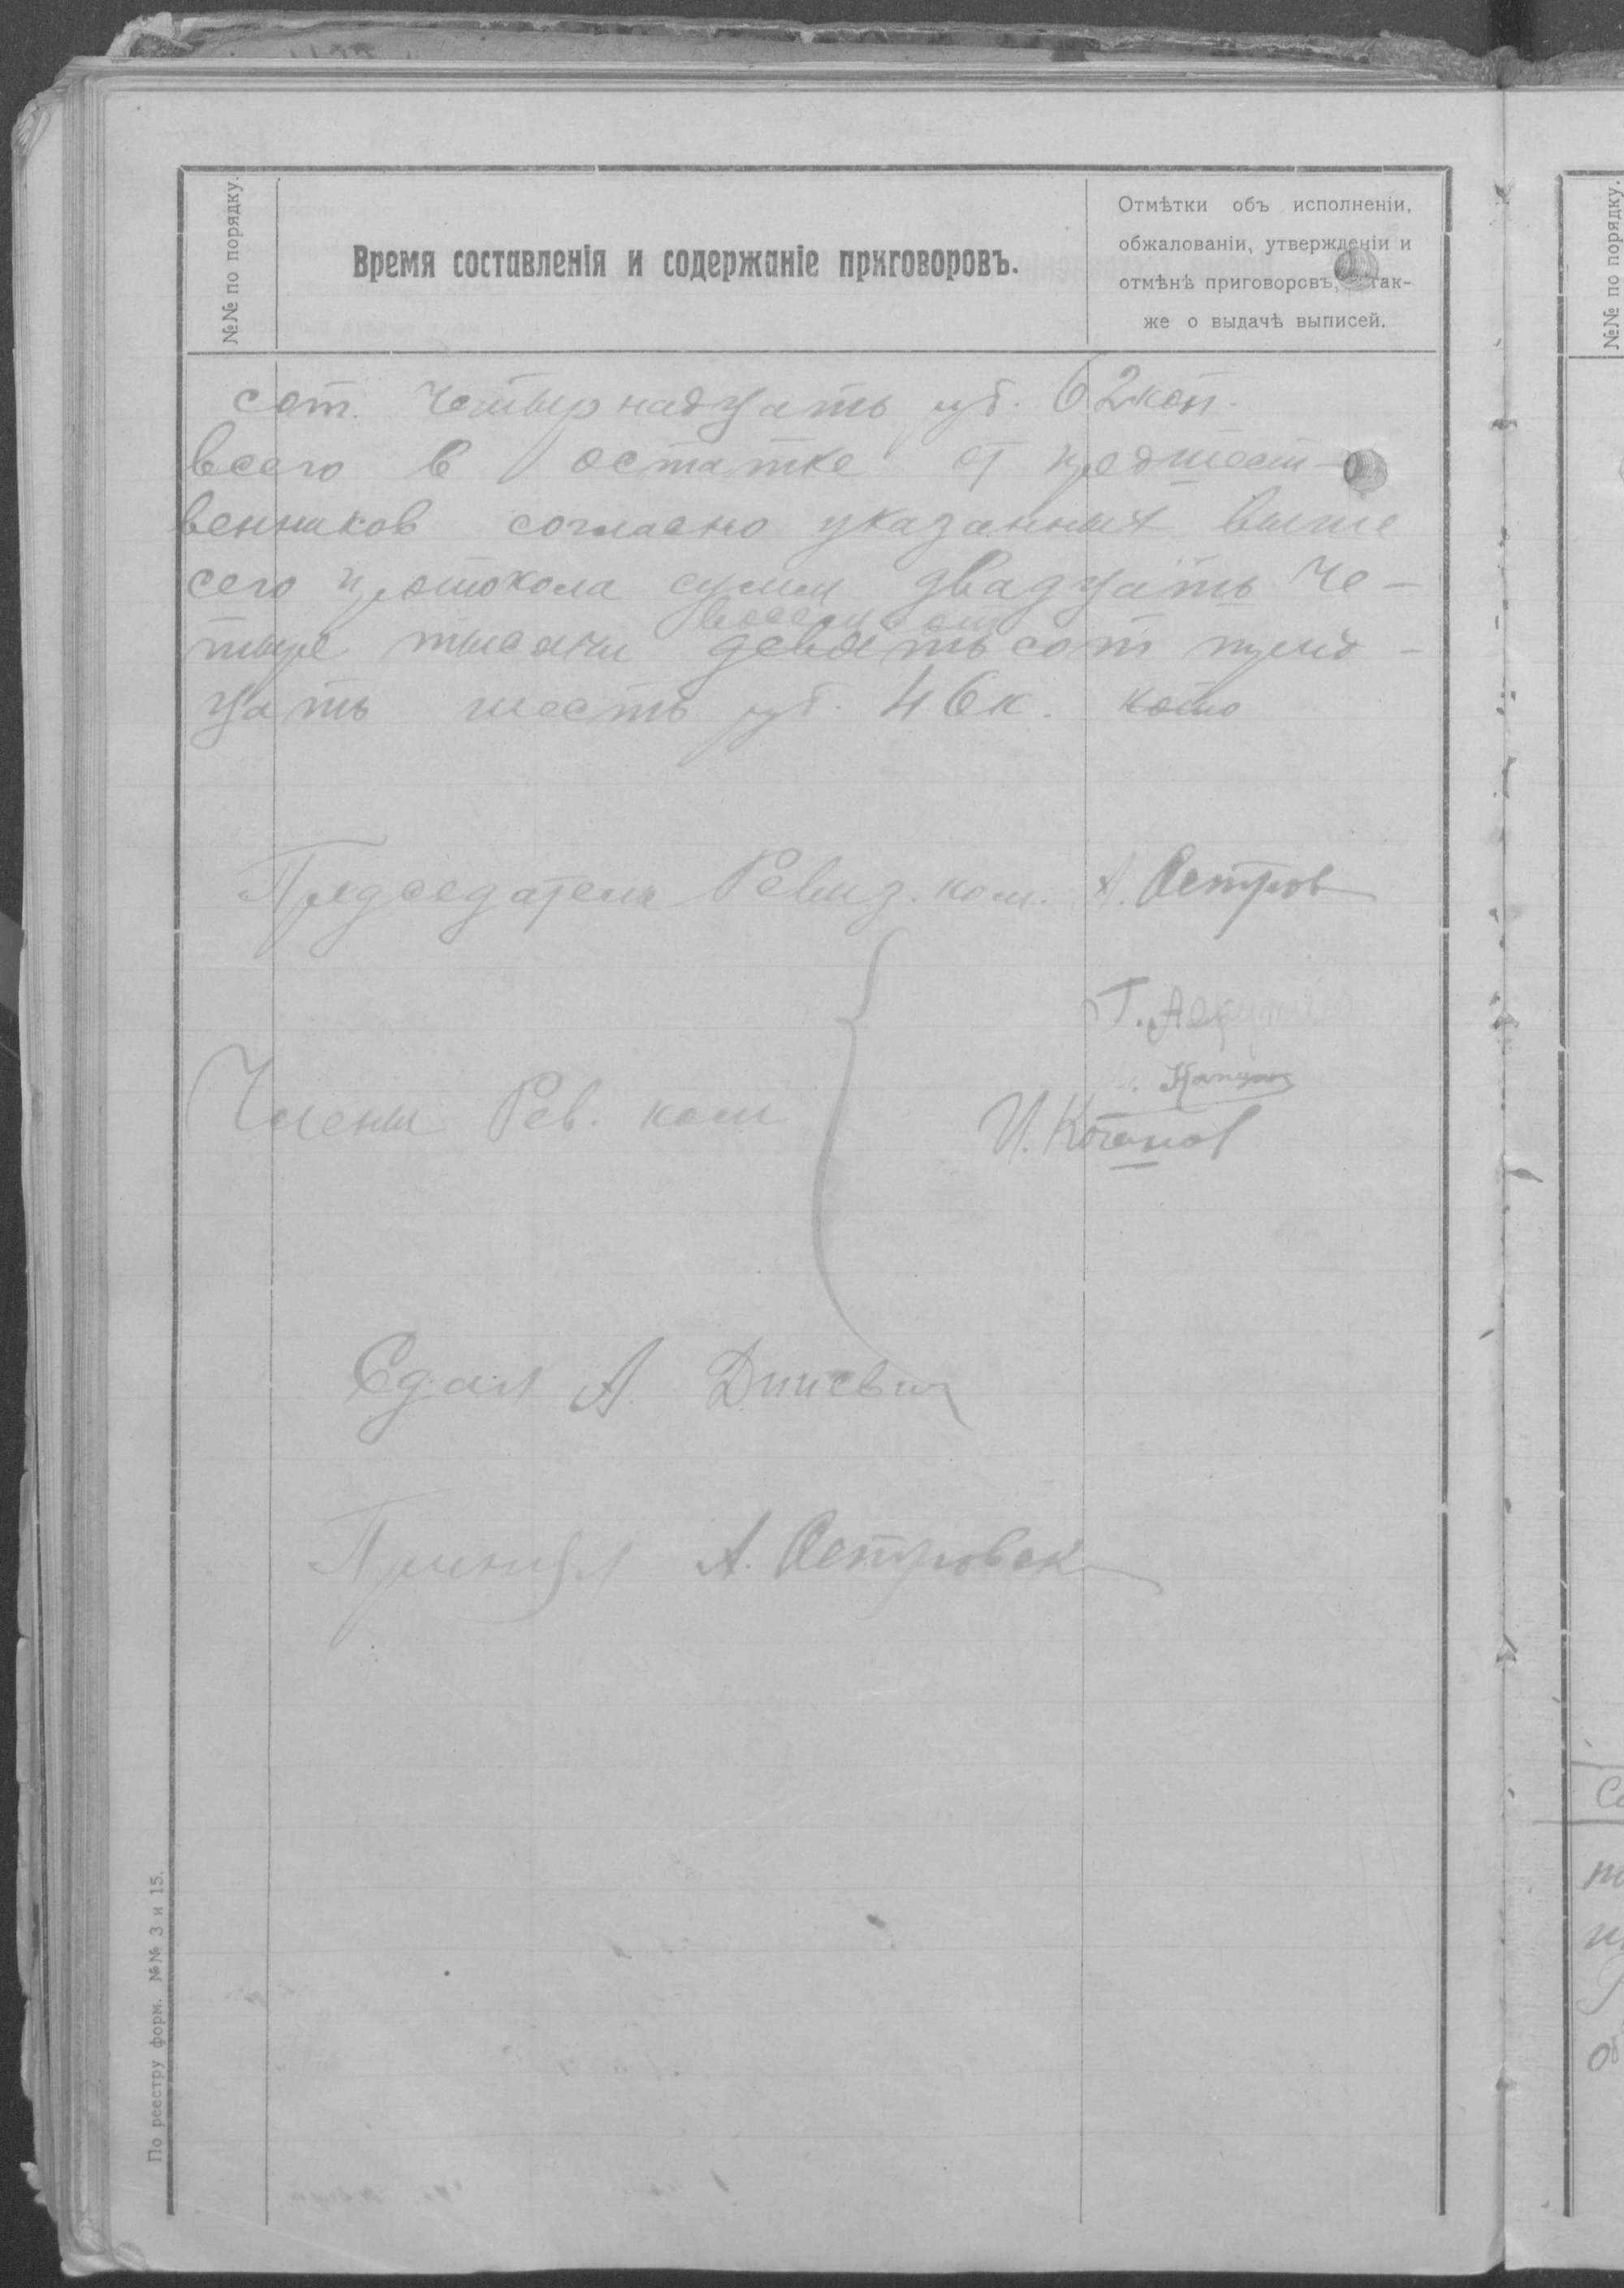 №№ по порядку.
Время составленія и содержаніе приговоровъ.
Отмѣтки объ исполненіи,
обжалованіи, утвержденіи и
отмѣнѣ приговоровъ, так-
же о выдачѣ выписей.
сот. четырнадцать руб. 62 коп.
всего в остатке от предшест-
венников согласно указанных выше
сего протокола сумм двадцать че-
восемьсот
тыре тысячи девятьсот трид-
цать шесть руб. 46 к.
Председатель Ревиз. ком. А. Остров
Г.
Члены Рев. ком
И.
Сдал А.
Принял А. Островск
По реестру форм. №№ 3 и 15.
№№ по порядку.